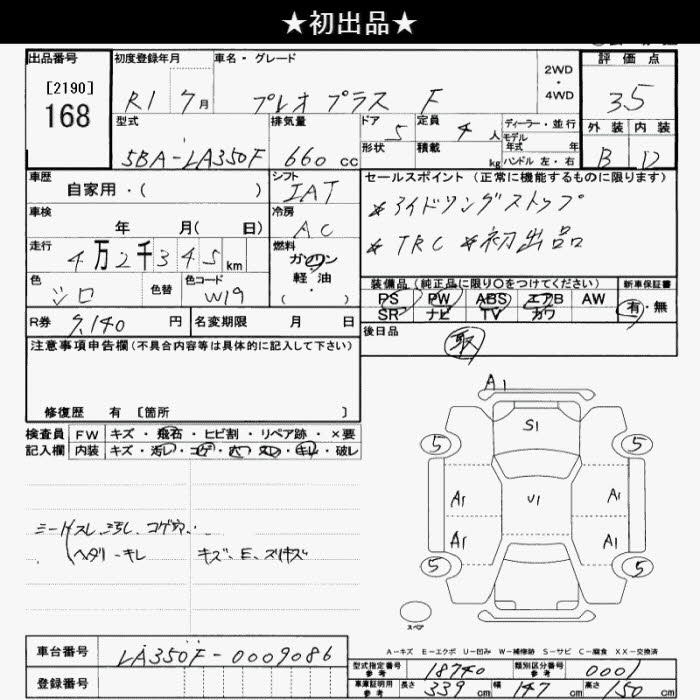 ★初出品★
出品番号 初度登録年月 車名・グレード 2WD・4WD 評価点
[2190]
168
R1 7月 プレオプラス F 35
型式 排気量 ドア 5 定員 4人 ディーラー・並行 外装 内装
形状 積載 kg モデル年式 年
ハンドル 左・右
5BA-LA350F 660cc B D
車歴 シフト セールスポイント (正常に機能するものに限ります)
自家用・( ) IAT
*アイドリングストップ
車検 冷房
年 月( 日) AC
*TRC *初出品
走行 燃料
4万2千345km ガソリン・軽油・( )
色 色替 色コード
シロ W19
装備品 (純正品に限り○をつけてください) 新車保証書
PS PW ABS エアB AW 有・無
SR ナビ TV カワ
R券 9,140円 名変期限 月 日
後日品
取
注意事項申告欄(不具合内容等は具体的に記入して下さい)
修復歴 有 [箇所 ]
検査員 FW キズ・飛石・ヒビ割・リペア跡・×要
記入欄 内装 キズ・汚レ・コゲ・穴・スレ・キレ・破レ
シートスレ、汚し、コゲ穴、
ヘタリ-キレ キズ、E、スリキズ
A1
S1
5 5
A1 U1 A1
A1 A1
5 5
スペア
A-キズ E-エクボ U-凹み W-補修跡 S-サビ C-腐食 XX-交換済
車台番号 LA350F-0009086
登録番号
型式指定番号 参考 18740 類別区分番号 参考 0001
車庫証明用 参考 長さ 339cm 幅 147cm 高さ 150cm